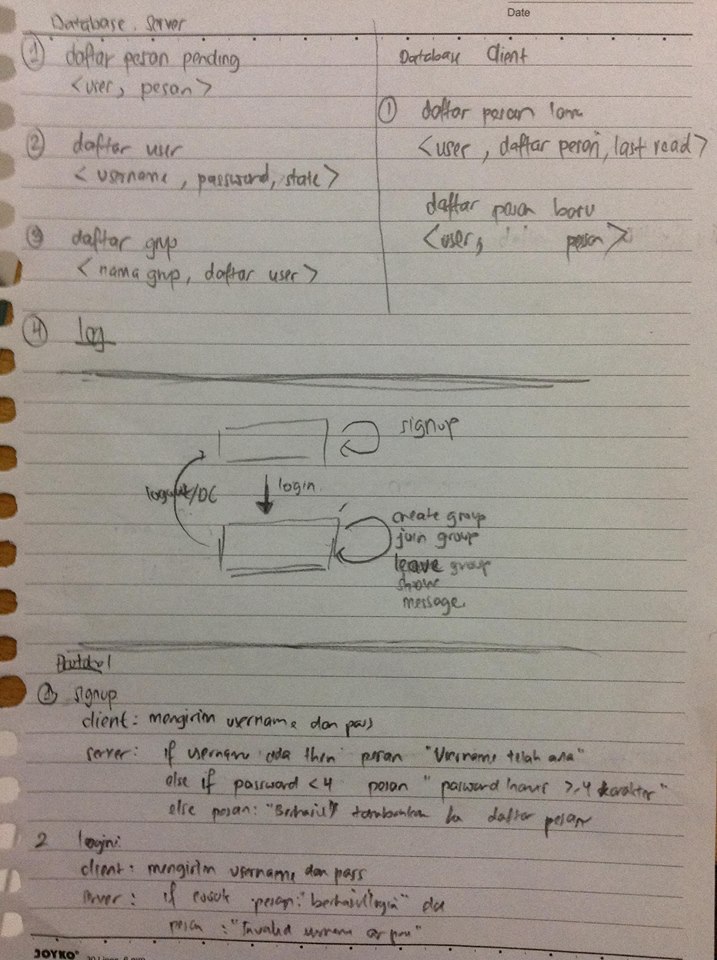 Date
Database Server
1 daftar pesan pending
<user, pesan>
2 daftar user
<username, password, state>
3 daftar grup
<nama grup, daftar user>
4 log
Database Client
1 daftar pesan lama
<user, daftar pesan, last read>
daftar pesan baru
<user, pesan>
signup
logout/DC
login
create group
join group
leave group
show
message
Protokol
1 signup
client: mengirim username dan pass
server: if username ada then pesan "Username telah ada"
else if password <4 pesan "password harus >4 karakter"
else pesan: "Berhasil" tambahkan ke daftar pesan
2 login:
client: mengirim username dan pass
server: if cocok pesan: "berhasil login"
pesan: "Invalid usernam or pass"
JOYKO